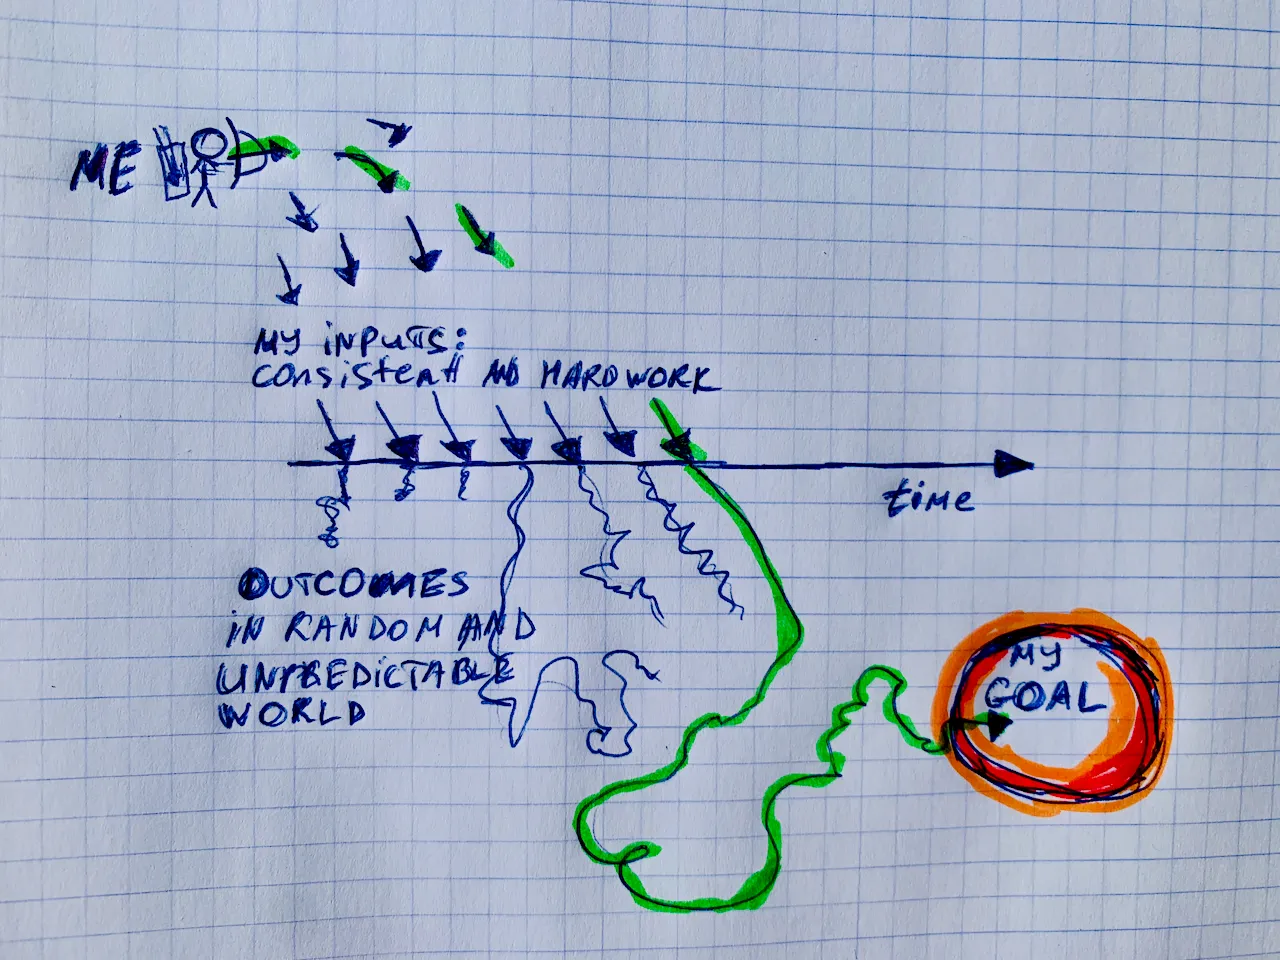 ME
MY INPUTS:
CONSISTENT AND HARD WORK
time
OUTCOMES
IN RANDOM AND
UNPREDICTABLE
WORLD
MY
GOAL